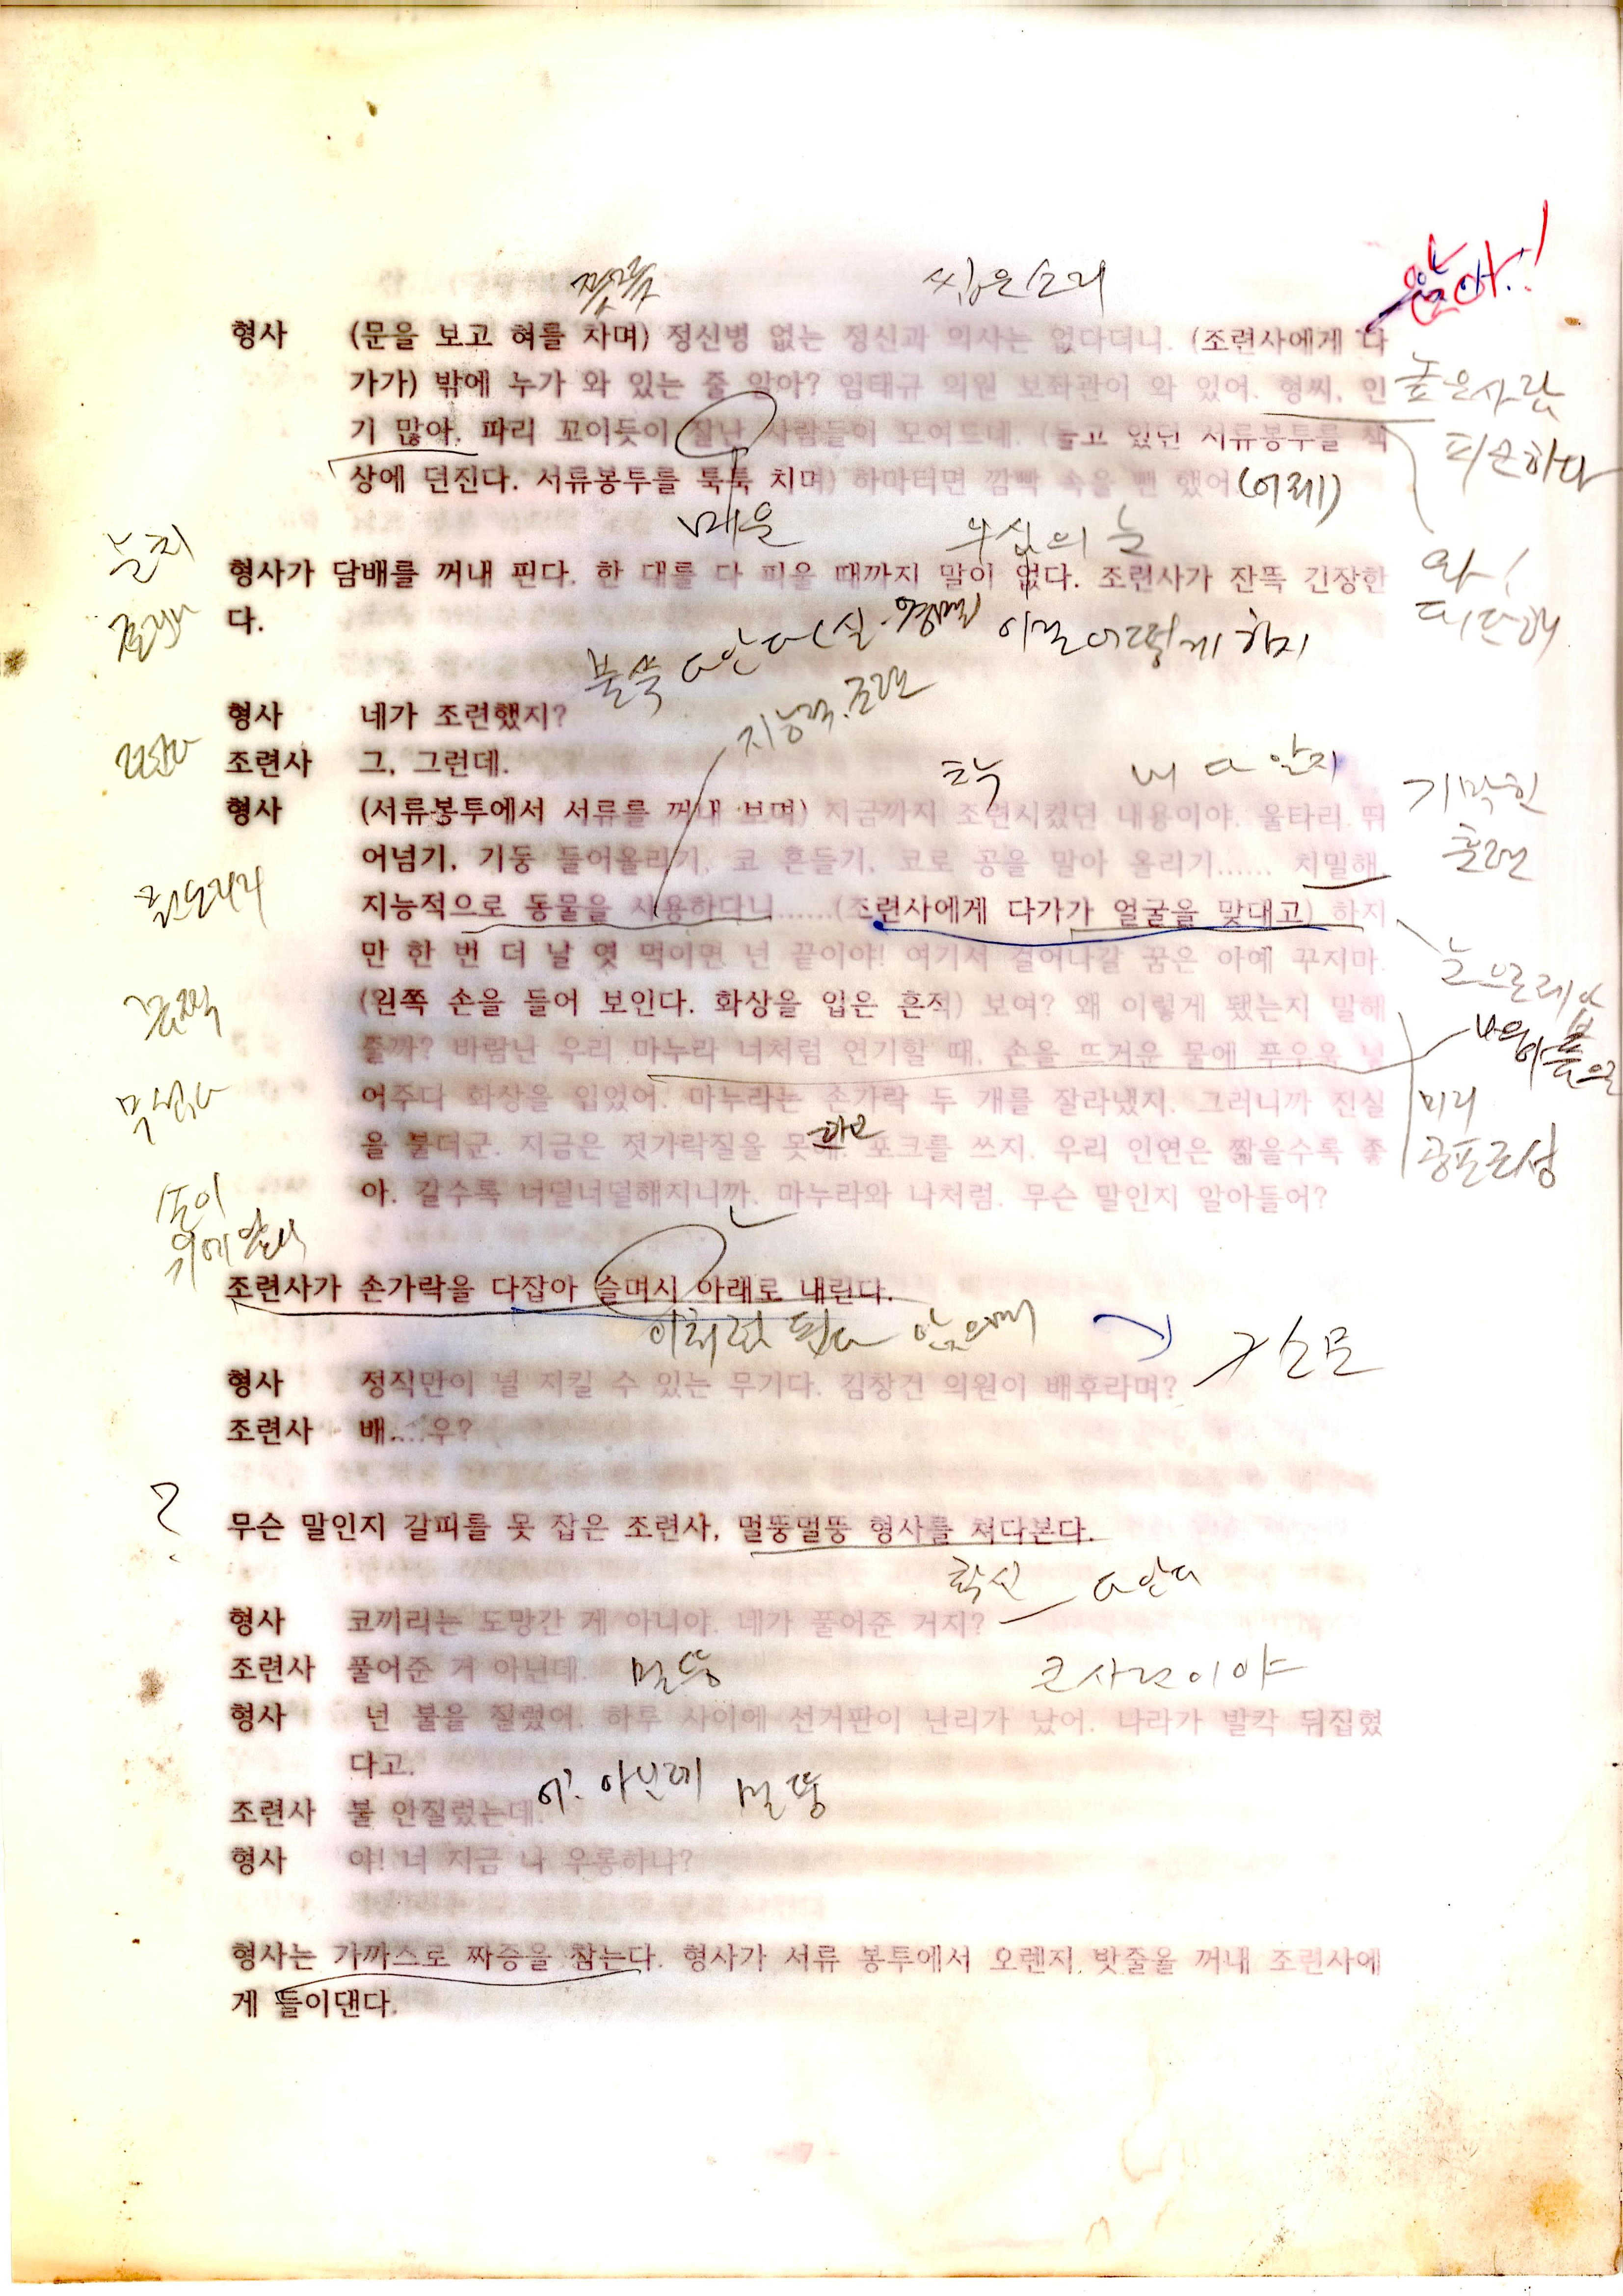 씹은소리
형사 (문을 보고 혀를 차며) 정신병 없는 정신과 의사는 없다더니. (조련사에게 다
가가) 밖에 누가 와 있는 줄 알아? 임태규 의원 보좌관이 와 있어. 형씨, 인
높은사람
기 많아. 파리 꼬이듯이 잘난 사람들이 모여드네. (들고 있던 서류봉투를 책
피곤하다
상에 던진다. 서류봉투를 툭툭 치며) 하마터면 깜빡 속을 뻔 했어 (어제)
매운
눈치
형사가 담배를 꺼내 핀다. 한 대를 다 피울 때까지 말이 없다. 조련사가 잔뜩 긴장한
와!
대단해
다.
불쑥 다안다 이걸어떻게 하지
지능적.조련
형사 네가 조련했지?
조련사 그, 그런데.
내 다 알지
기막힌
훈련
형사 (서류봉투에서 서류를 꺼내 보며) 지금까지 조련시켰던 내용이야. 울타리 뛰
어넘기, 기둥 들어올리기, 코 흔들기, 코로 공을 말아 올리기...... 치밀해.
지능적으로 동물을 사용하다니......(조련사에게 다가가 얼굴을 맞대고) 하지
만 한 번 더 날 엿 먹이면 넌 끝이야! 여기서 걸어나갈 꿈은 아예 꾸지마.
(왼쪽 손을 들어 보인다. 화상을 입은 흔적) 보여? 왜 이렇게 됐는지 말해
줄까? 바람난 우리 마누라 너처럼 연기할 때, 손을 뜨거운 물에 푸우욱 넣
무섭다
어주다 화상을 입었어. 마누라는 손가락 두 개를 잘라냈지. 그러니까 진실
미리
공포조성
을 불더군. 지금은 젓가락질을 못해. 포크를 쓰지. 우리 인연은 짧을수록 좋
아. 갈수록 너덜너덜해지니까. 마누라와 나처럼. 무슨 말인지 알아들어?
손이
위에 있다
조련사가 손가락을 다잡아 슬며시 아래로 내린다.
이처럼 된다 않으면
형사 정직만이 널 지킬 수 있는 무기다. 김창건 의원이 배후라며?
조련사 배....우?
?
무슨 말인지 갈피를 못 잡은 조련사, 멀뚱멀뚱 형사를 쳐다본다.
확신 다 안다
형사 코끼리는 도망간 게 아니야. 네가 풀어준 거지?
조련사 풀어준 거 아닌데. 멀뚱
큰사건이야
형사 넌 불을 질렀어. 하루 사이에 선거판이 난리가 났어. 나라가 발칵 뒤집혔
다고.
아닌데 멀뚱
조련사 불 안질렀는데.
형사 야! 너 지금 나 우롱하냐?
형사는 가까스로 짜증을 참는다. 형사가 서류 봉투에서 오렌지 밧줄을 꺼내 조련사에
게 들이댄다.